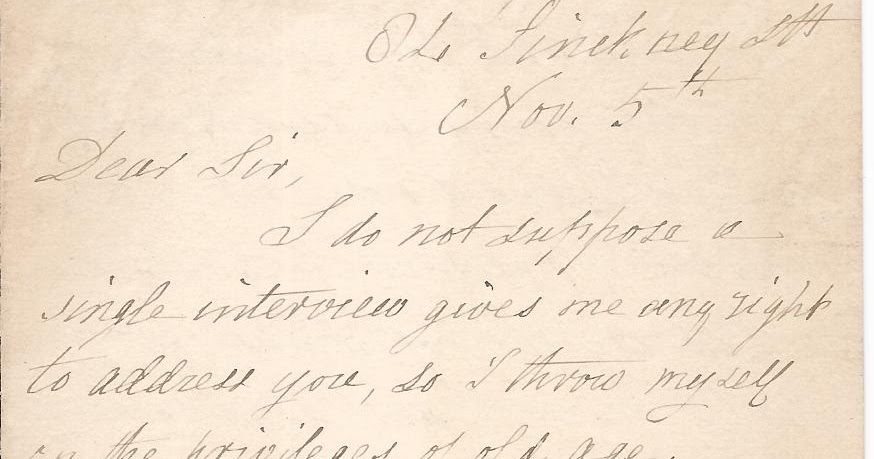 Pinckney St
Nov. 5th
Dear Sir,
I do not suppose a
single interview gives me any right
to address you, so I throw myself
on the privileges of old age.